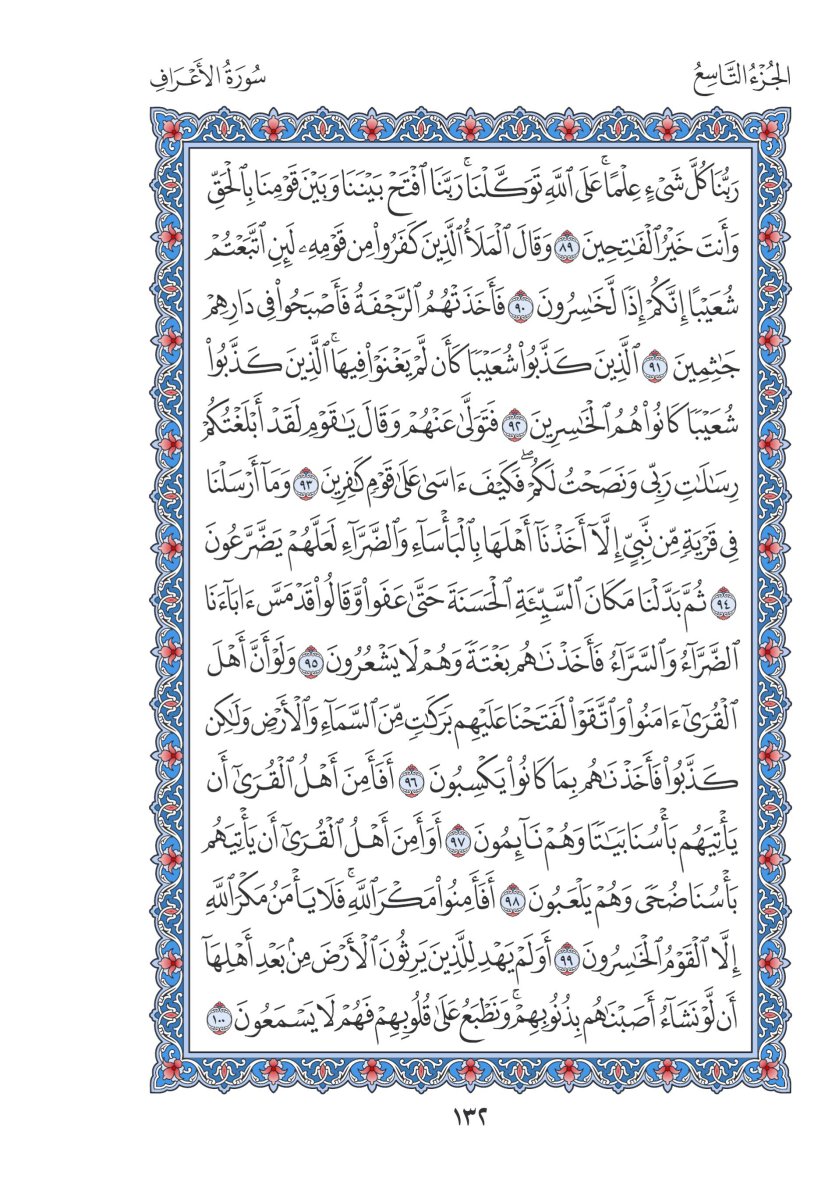 الجُزْءُ التَّاسِعُ
سُورَةُ الأَعْرَافِ
رَبُّنَا كُلَّ شَىْءٍ عِلْمًاۚ عَلَى ٱللَّهِ تَوَكَّلْنَاۚ رَبَّنَا ٱفْتَحْ بَيْنَنَا وَبَيْنَ قَوْمِنَا بِٱلْحَقِّ
وَأَنتَ خَيْرُ ٱلْفَٰتِحِينَ ٨٩ وَقَالَ ٱلْمَلَأُ ٱلَّذِينَ كَفَرُوا۟ مِن قَوْمِهِۦ لَئِنِ ٱتَّبَعْتُمْ
شُعَيْبًا إِنَّكُمْ إِذًا لَّخَٰسِرُونَ ٩٠ فَأَخَذَتْهُمُ ٱلرَّجْفَةُ فَأَصْبَحُوا۟ فِى دَارِهِمْ
جَٰثِمِينَ ٩١ ٱلَّذِينَ كَذَّبُوا۟ شُعَيْبًا كَأَن لَّمْ يَغْنَوْا۟ فِيهَاۚ ٱلَّذِينَ كَذَّبُوا۟
شُعَيْبًا كَانُوا۟ هُمُ ٱلْخَٰسِرِينَ ٩٢ فَتَوَلَّىٰ عَنْهُمْ وَقَالَ يَٰقَوْمِ لَقَدْ أَبْلَغْتُكُمْ
رِسَٰلَٰتِ رَبِّى وَنَصَحْتُ لَكُمْۖ فَكَيْفَ ءَاسَىٰ عَلَىٰ قَوْمٍ كَٰفِرِينَ ٩٣ وَمَآ أَرْسَلْنَا
فِى قَرْيَةٍ مِّن نَّبِىٍّ إِلَّآ أَخَذْنَآ أَهْلَهَا بِٱلْبَأْسَآءِ وَٱلضَّرَّآءِ لَعَلَّهُمْ يَضَّرَّعُونَ
٩٤ ثُمَّ بَدَّلْنَا مَكَانَ ٱلسَّيِّئَةِ ٱلْحَسَنَةَ حَتَّىٰ عَفَوا۟ وَّقَالُوا۟ قَدْ مَسَّ ءَابَآءَنَا
ٱلضَّرَّآءُ وَٱلسَّرَّآءُ فَأَخَذْنَٰهُم بَغْتَةً وَهُمْ لَا يَشْعُرُونَ ٩٥ وَلَوْ أَنَّ أَهْلَ
ٱلْقُرَىٰٓ ءَامَنُوا۟ وَٱتَّقَوْا۟ لَفَتَحْنَا عَلَيْهِم بَرَكَٰتٍ مِّنَ ٱلسَّمَآءِ وَٱلْأَرْضِ وَلَٰكِن
كَذَّبُوا۟ فَأَخَذْنَٰهُم بِمَا كَانُوا۟ يَكْسِبُونَ ٩٦ أَفَأَمِنَ أَهْلُ ٱلْقُرَىٰٓ أَن
يَأْتِيَهُم بَأْسُنَا بَيَٰتًا وَهُمْ نَآئِمُونَ ٩٧ أَوَأَمِنَ أَهْلُ ٱلْقُرَىٰٓ أَن يَأْتِيَهُم
بَأْسُنَا ضُحًى وَهُمْ يَلْعَبُونَ ٩٨ أَفَأَمِنُوا۟ مَكْرَ ٱللَّهِۚ فَلَا يَأْمَنُ مَكْرَ ٱللَّهِ
إِلَّا ٱلْقَوْمُ ٱلْخَٰسِرُونَ ٩٩ أَوَلَمْ يَهْدِ لِلَّذِينَ يَرِثُونَ ٱلْأَرْضَ مِنۢ بَعْدِ أَهْلِهَآ
أَن لَّوْ نَشَآءُ أَصَبْنَٰهُم بِذُنُوبِهِمْۚ وَنَطْبَعُ عَلَىٰ قُلُوبِهِمْ فَهُمْ لَا يَسْمَعُونَ ١٠٠
١٣٢